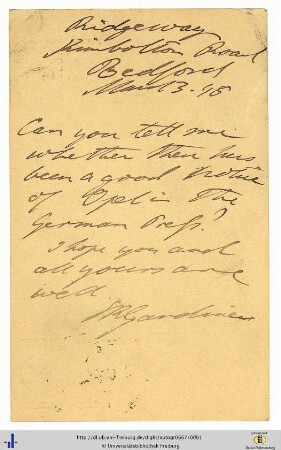 Ridgeway
Kimbolton Road
Bedford
Mar 3. 95
Can you tell me
whether there has
been a good notice
of Opel in the
German Press?
I hope you and
all yours are
well
SRGardiner
http://dl.ub.uni-freiburg.de/diglit/autogr0662/0001
© Universitätsbibliothek Freiburg